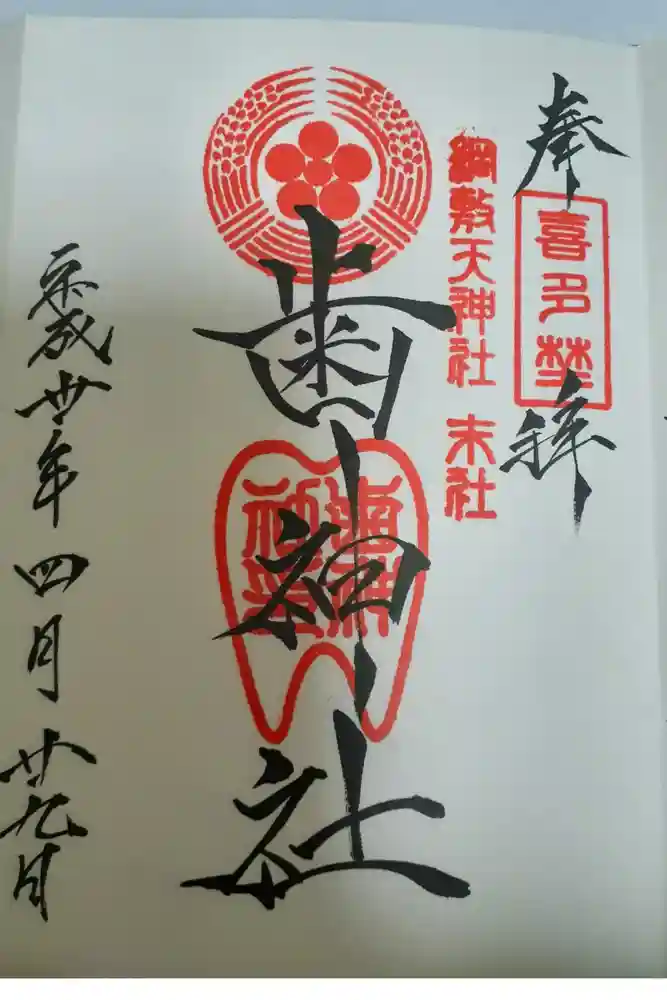 奉拝
喜多埜
綱敷天神社 末社
歯神社
歯神社印
平成卅年四月廿九日